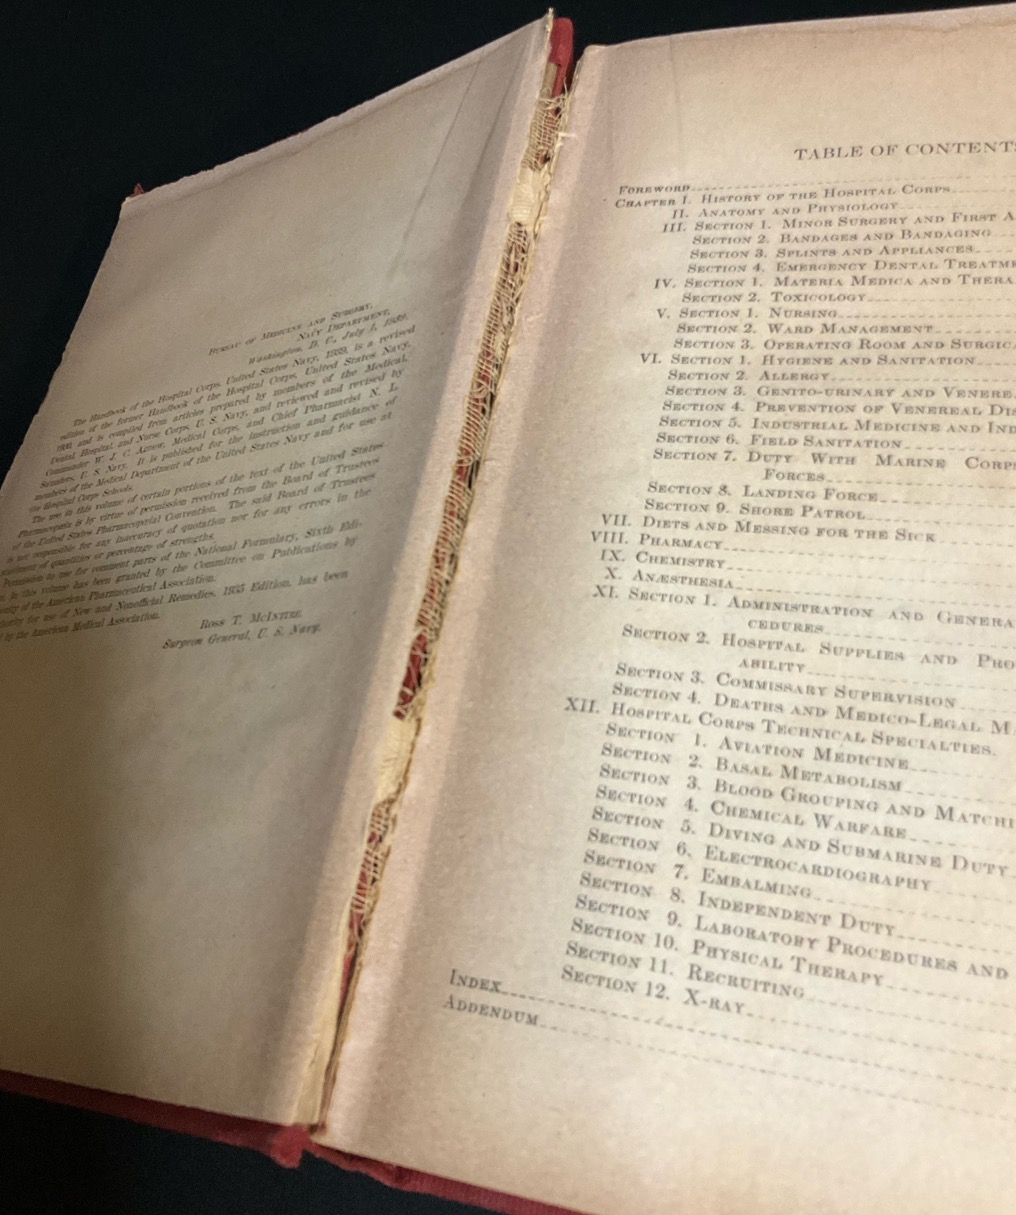 BUREAU OF MEDICINE AND SURGERY,
NAVY DEPARTMENT,
Washington, D. C., July 1, 1939.
The Handbook of the Hospital Corps, United States Navy, 1939, is a revised
edition of the former Handbook of the Hospital Corps, United States Navy,
1930, and is compiled from articles prepared by members of the Medical,
Dental, Hospital, and Nurse Corps, U. S. Navy, and reviewed and revised by
Commander W. J. C. Agnew, Medical Corps, and Chief Pharmacist N. L.
Saunders, U. S. Navy. It is published for the instruction and guidance of
members of the Medical Department of the United States Navy and for use at
the Hospital Corps Schools.
The use in this volume of certain portions of the text of the United States
Pharmacopœia is by virtue of permission received from the Board of Trustees
of the United States Pharmacopœial Convention. The said Board of Trustees
is not responsible for any inaccuracy of quotation nor for any errors in the
statement of quantities or percentage of strengths.
Permission to use for comment parts of the National Formulary, Sixth Edi-
in this volume has been granted by the Committee on Publications by
of the American Pharmaceutical Association.
for use of New and Nonofficial Remedies, 1935 Edition, has been
by the American Medical Association.
ROSS T. MCINTIRE,
Surgeon General, U. S. Navy.
TABLE OF CONTENTS
FOREWORD
CHAPTER I. HISTORY OF THE HOSPITAL CORPS
II. ANATOMY AND PHYSIOLOGY
III. SECTION 1. MINOR SURGERY AND FIRST A
SECTION 2. BANDAGES AND BANDAGING
SECTION 3. SPLINTS AND APPLIANCES
SECTION 4. EMERGENCY DENTAL TREATME
IV. SECTION 1. MATERIA MEDICA AND THERA
SECTION 2. TOXICOLOGY
V. SECTION 1. NURSING
SECTION 2. WARD MANAGEMENT
SECTION 3. OPERATING ROOM AND SURGIC
VI. SECTION 1. HYGIENE AND SANITATION
SECTION 2. ALLERGY
SECTION 3. GENITO-URINARY AND VENERE
SECTION 4. PREVENTION OF VENEREAL DIS
SECTION 5. INDUSTRIAL MEDICINE AND IND
SECTION 6. FIELD SANITATION
SECTION 7. DUTY WITH MARINE CORPS
FORCES
SECTION 8. LANDING FORCE
SECTION 9. SHORE PATROL
VII. DIETS AND MESSING FOR THE SICK
VIII. PHARMACY
IX. CHEMISTRY
X. ANÆSTHESIA
XI. SECTION 1. ADMINISTRATION AND GENERA
CEDURES
SECTION 2. HOSPITAL SUPPLIES AND PRO
ABILITY
SECTION 3. COMMISSARY SUPERVISION
SECTION 4. DEATHS AND MEDICO-LEGAL M
XII. HOSPITAL CORPS TECHNICAL SPECIALTIES.
SECTION 1. AVIATION MEDICINE
SECTION 2. BASAL METABOLISM
SECTION 3. BLOOD GROUPING AND MATCHI
SECTION 4. CHEMICAL WARFARE
SECTION 5. DIVING AND SUBMARINE DUTY
SECTION 6. ELECTROCARDIOGRAPHY
SECTION 7. EMBALMING
SECTION 8. INDEPENDENT DUTY
SECTION 9. LABORATORY PROCEDURES AND
SECTION 10. PHYSICAL THERAPY
SECTION 11. RECRUITING
SECTION 12. X-RAY
INDEX
ADDENDUM